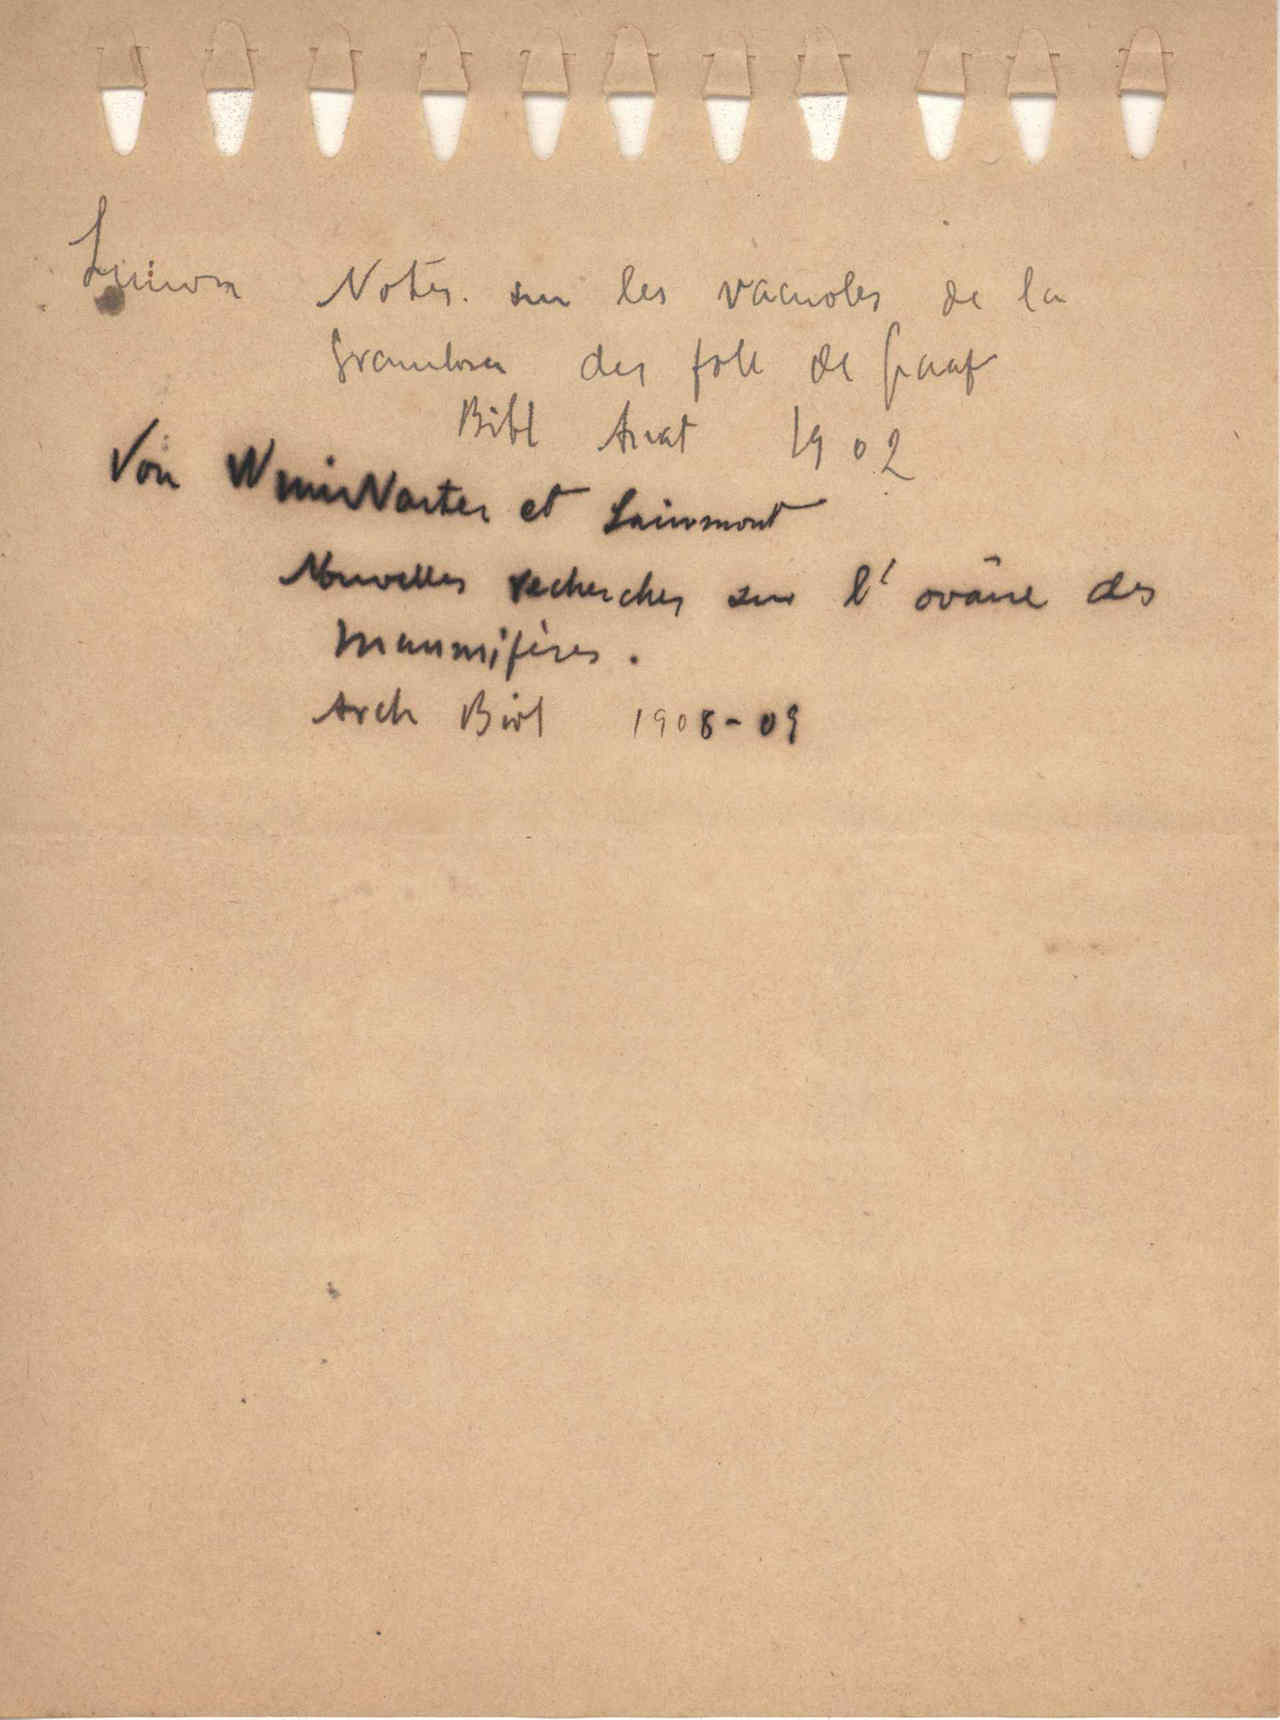 Limon Notes. sur les vacuoles de la
Granulosa des foll de Graaf
Bibl Anat 1902
Von Winiwarter et Sainmont
Nouvelles recherches sur l'ovaire des
mammifères.
Arch Biol 1908-09